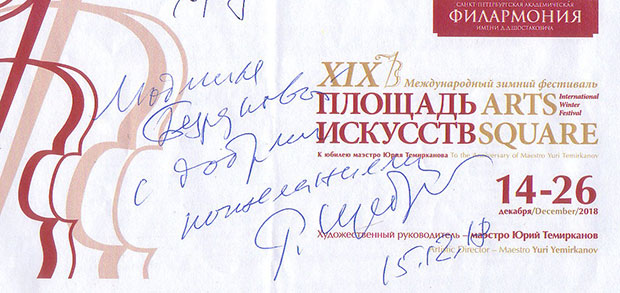 САНКТ-ПЕТЕРБУРГСКАЯ АКАДЕМИЧЕСКАЯ
ФИЛАРМОНИЯ
ИМЕНИ Д.Д.ШОСТАКОВИЧА
XIX Международный зимний фестиваль
ПЛОЩАДЬ ARTS
ИСКУССТВ SQUARE
International
Winter
Festival
К юбилею маэстро Юрия Темирканова To the Anniversary of Maestro Yuri Temirkanov
14-26
декабря/December/2018
Художественный руководитель – маэстро Юрий Темирканов
Artistic Director – Maestro Yuri Yemirkanov
Людмиле
с добрыми
пожеланиями
Р. Щедрин
15.12.18